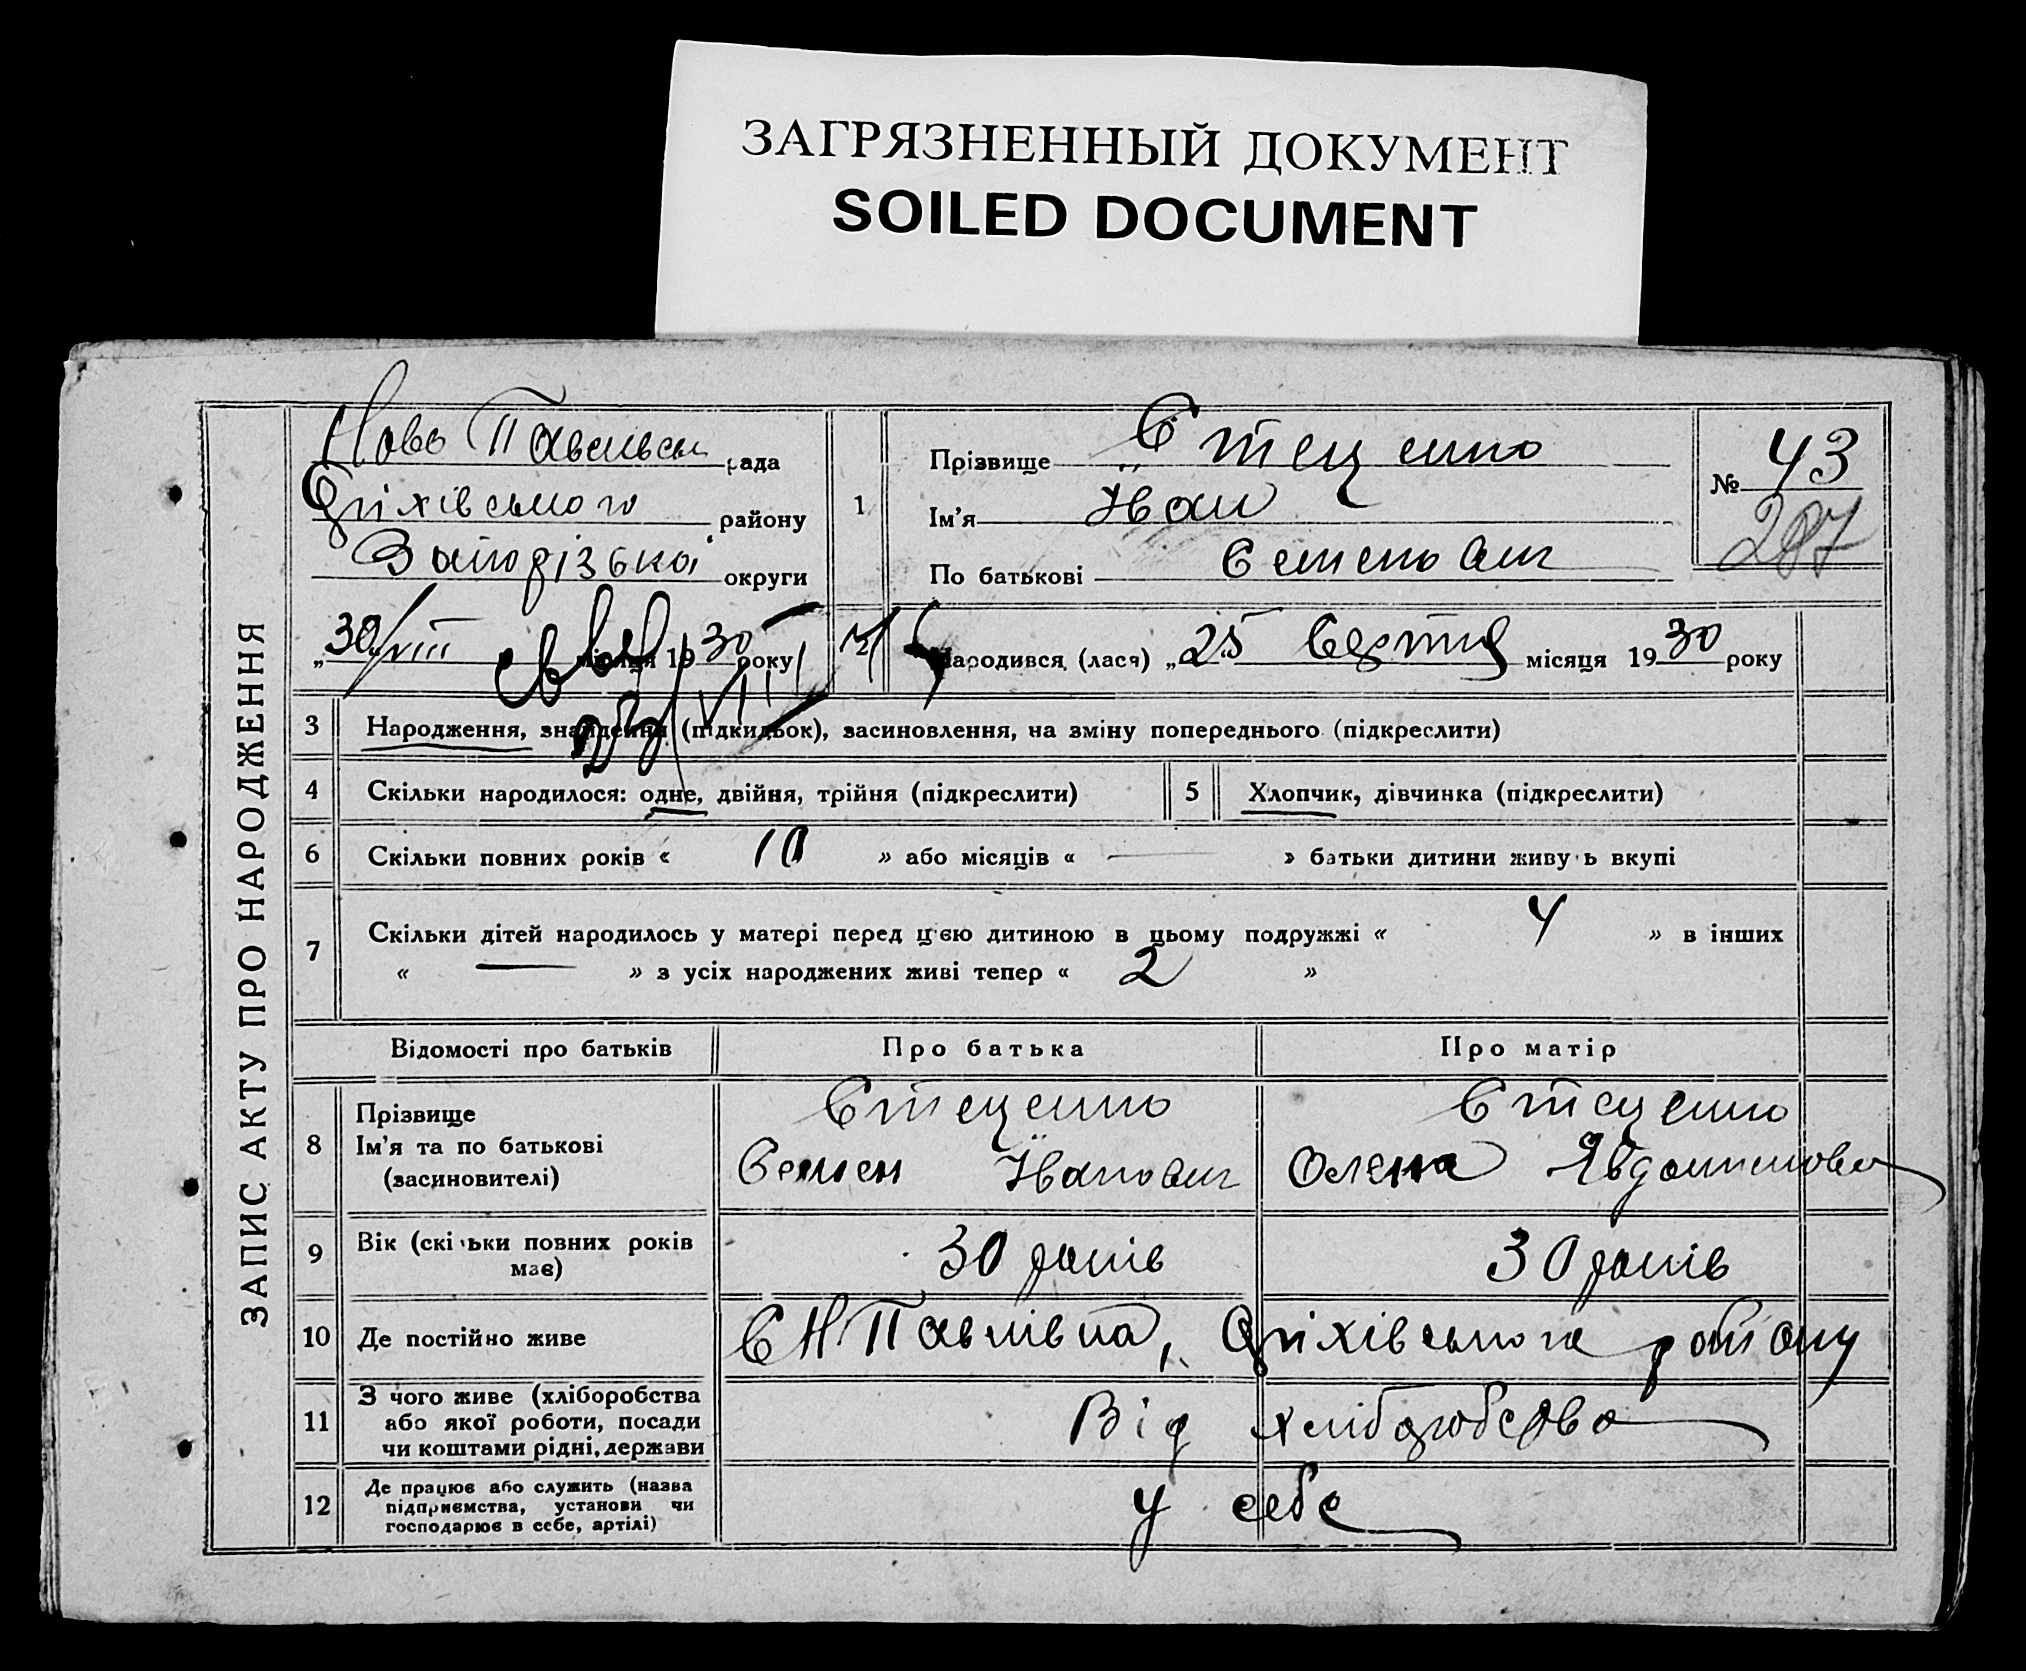 ЗАГРЯЗНЕННЫЙ ДОКУМЕНТ
SOILED DOCUMENT
ЗАПИС АКТУ ПРО НАРОДЖЕННЯ
Ново Павлівськ рада
Оріхівського району
Запорізької округи
„30/VIII місяця 1930 року
1
Прізвище Стеценко
Ім'я Іван
По батькові Семенович
№ 43
287
2 Народився (лася) „25 серпня місяця 1930 року
3 Народження, знайдення (підкидьок), засиновлення, на зміну попереднього (підкреслити)
4 Скільки народилося: одне, двійня, трійня (підкреслити)
5 Хлопчик, дівчинка (підкреслити)
6 Скільки повних років « 10 » або місяців « — » батьки дитини живуть вкупі
7 Скільки дітей народилось у матері перед цією дитиною в цьому подружжі « 4 » в інших
« — » з усіх народжених живі тепер « 2 »
Відомості про батьків Про батька Про матір
8 Прізвище
Ім'я та по батькові
(засиновителі)
Стеценко
Семен Іванович
Стеценко
Олена Явдокимовна
9 Вік (скільки повних років
має)
30 років
30 років
10 Де постійно живе С Н Павлівка, Оріхівського району
11 З чого живе (хліборобства
або якої роботи, посади
чи коштами рідні, держави
Від хліборобства
12 Де працює або служить (назва
підприємства, установи чи
господарює в себе, артілі)
у себе